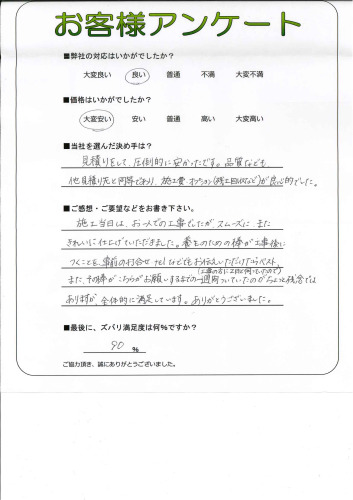 お客様アンケート
■弊社の対応はいかがでしたか？
大変良い 良い 普通 不満 大変不満
■価格はいかがでしたか？
大変安い 安い 普通 高い 大変高い
■当社を選んだ決め手は？
見積りをして、圧倒的に安かったです。品質なども、
他見積り先と同等であり、施工費、オプション(残土回収など)が良心的でした。
■ご感想・ご要望などをお書き下さい。
施工当日は、お一人での工事でしたが、スムーズに、また
きれいに仕上げていただきました。養生のための棒が工事後に
つくことを、事前の打合せ、telなどでもお伝えいただけたらベスト、
また、その棒がこちらがお願いするまでの一週間ついていたのがちょっと残念では
ありますが、全体的に満足しています。ありがとうございました。
■最後に、ズバリ満足度は何%ですか？
90 %
ご協力頂き、誠にありがとうございました。